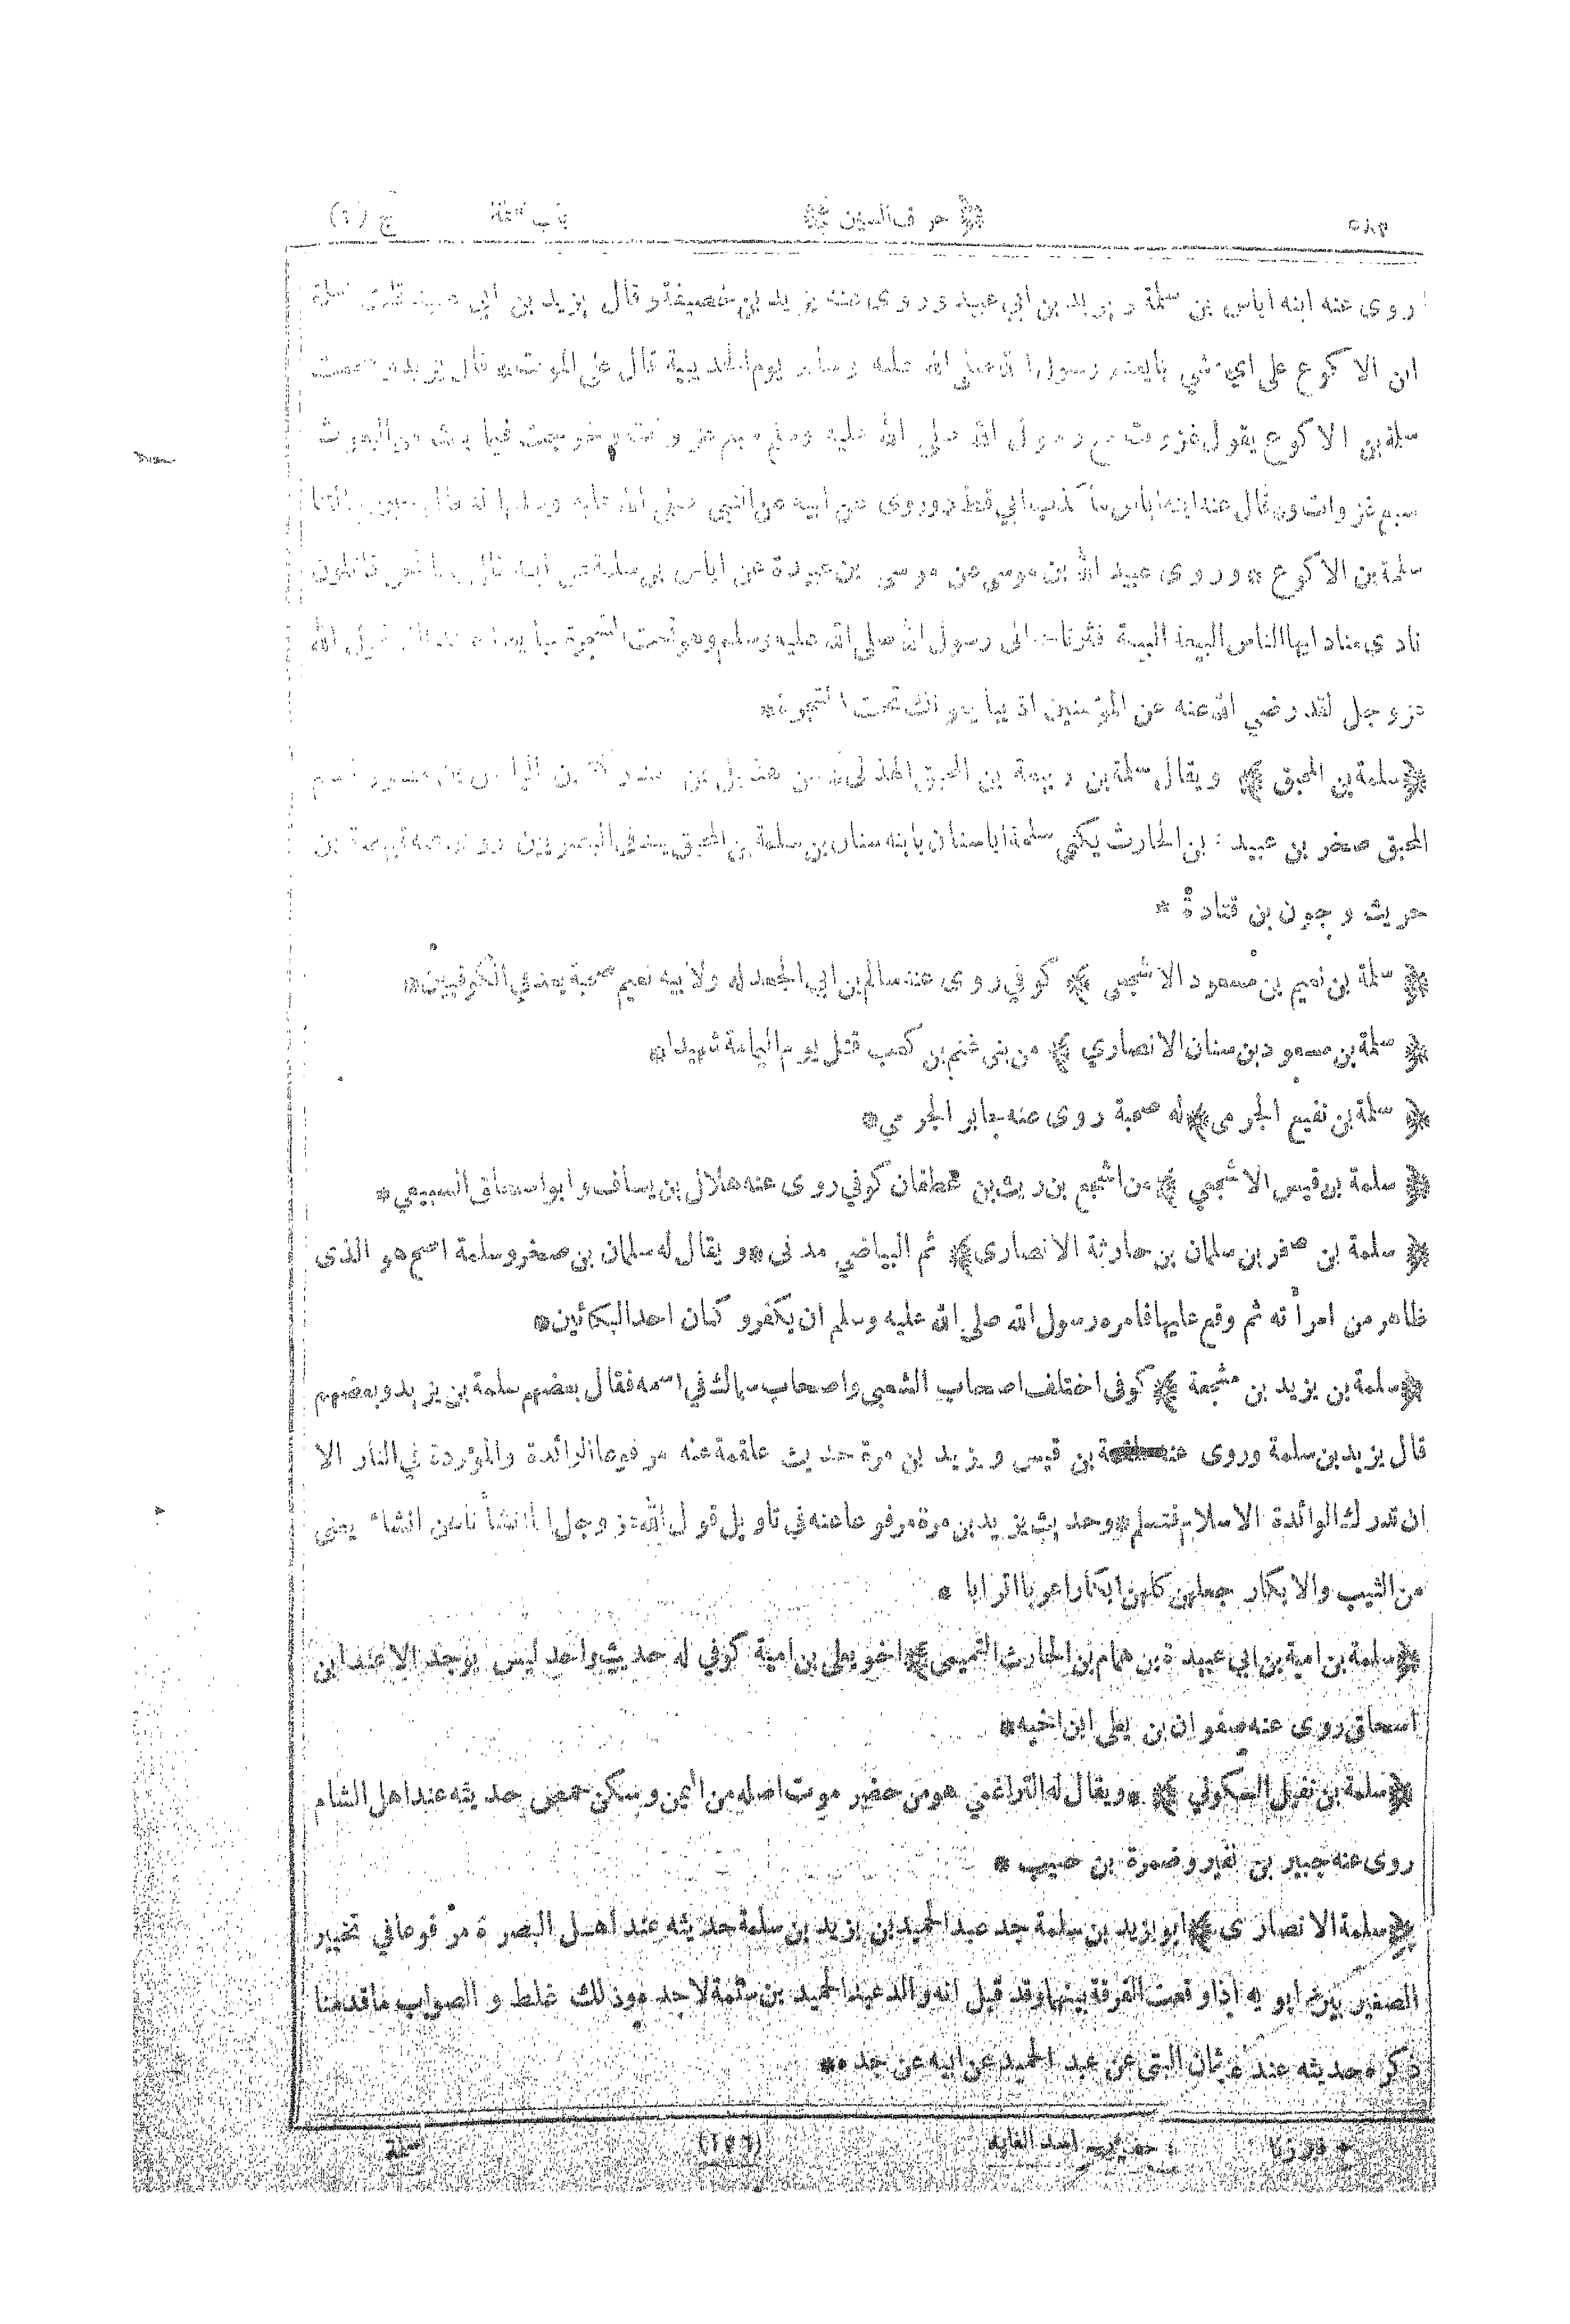 ﴿ حرف السين ﴾ باب سلمة ج (٢)
روى عنه ابنه اياس بن سلمة ويزيد بن ابي عبيد وروى عنه يزيد بن خصيفة وقال يزيد بن ابي عبيد قلت لسلمة
ابن الاكوع على اي شي بايعتم رسول الله صلى الله عليه وسلم يوم الحديبية قال على الموت * قال يزيد وسمعت
سلمة بن الاكوع يقول غزوت مع رسول الله صلى الله عليه وسلم سبع غزوات وخرجت فيما يبعث من البعوث
سبع غزوات وقال عنه ابنه اياس ما كذب ابي قط وروى عن ابيه عن النبي صلى الله عليه وسلم انه قال خير رجالتنا
سلمة بن الاكوع * وروى عبيد الله بن موسى عن موسى بن عبيدة عن اياس بن سلمة عن ابيه قال بينا نحن قائلون
نادى مناد ايها الناس البيعة البيعة فثرنا الى رسول الله صلى الله عليه وسلم وهو تحت الشجرة فبايعناه فذلك قول الله
عزوجل لقد رضي الله عن المؤمنين اذ يبايعونك تحت الشجرة *
﴿ سلمة بن المحبق ﴾ ويقال سلمة بن ربيعة بن المحبق الهذلى من هذيل بن مدركة بن الياس بن مضر واسم
المحبق صخر بن عبيد بن الحارث يكنى سلمة اباسنان بابنه سنان بن سلمة بن المحبق يعد فى البصريين روى عنه قبيصة بن
حريث وجون بن قتادة *
﴿ سلمة بن نعيم بن مسعود الاشجعى ﴾ كوفي روى عنه سالم بن ابي الجعد له ولابيه نعيم صحبة يعد في الكوفيين *
﴿ سلمة بن مسعود بن سنان الانصاري ﴾ من بنى غنم بن كعب قتل يوم اليمامة شهيدا *
﴿ سلمة بن نفيع الجرمى ﴾ له صحبة روى عنه جابر الجرمي *
﴿ سلمة بن قيس الاشجعي ﴾ من اشجع بن ريث بن غطفان كوفي روى عنه هلال بن يساف وابواسحاق السبيعي *
﴿ سلمة بن صخر بن سلمان بن حارثة الانصارى ﴾ ثم البياضي مدنى * ويقال له سلمان بن صخر وسلمة اصح هو الذى
ظاهر من امرأته ثم وقع عليها فامره رسول الله صلى الله عليه وسلم ان يكفر وكان احد البكائين *
﴿ سلمة بن يزيد بن مشجعة ﴾ كوفى اختلف اصحاب الشعبى واصحاب سماك في اسمه فقال بعضهم سلمة بن يزيد وبعضهم
قال يزيد بن سلمة وروى عنه علقمة بن قيس ويزيد بن مرة حديث علقمة عنه مرفوعا الوائدة والموؤدة في النار الا
ان تدرك الوائدة الاسلام فتسلم * وحديث يزيد بن مرة مرفوعا عنه في تاويل قول الله عزوجل انا انشأناهن انشاء يعنى
من الثيب والابكار جعلهن كلهن ابكارا عربا اترابا *
﴿ سلمة بن امية بن ابي عبيدة بن همام بن الحارث التميمى ﴾ اخو يعلى بن امية كوفي له حديث واحد ليس يوجد الا عند ابن
اسحاق روى عنه صفوان بن يعلى ابن اخيه *
﴿ سلمة بن نفيل السكوني ﴾ * ويقال له التراغمي هو من حضر موت اصله من اليمن وسكن حمص حديثه عند اهل الشام
روى عنه جبير بن نفير وضمرة بن حبيب *
﴿ سلمة الانصارى ﴾ ابو يزيد بن سلمة جد عبد الحميد بن يزيد بن سلمة حديثه عند اهل البصرة مرفوعا في تخيير
الصغير بين ابويه اذا وقعت الفرقة بينهما وقد قيل انه والد عبد الحميد بن سلمة لا جده وذلك غلط والصواب ما قدمنا
ذكره حديثه عند عثمان البتى عن عبد الحميد عن ابيه عن جده *
(١٥٦) سلمة